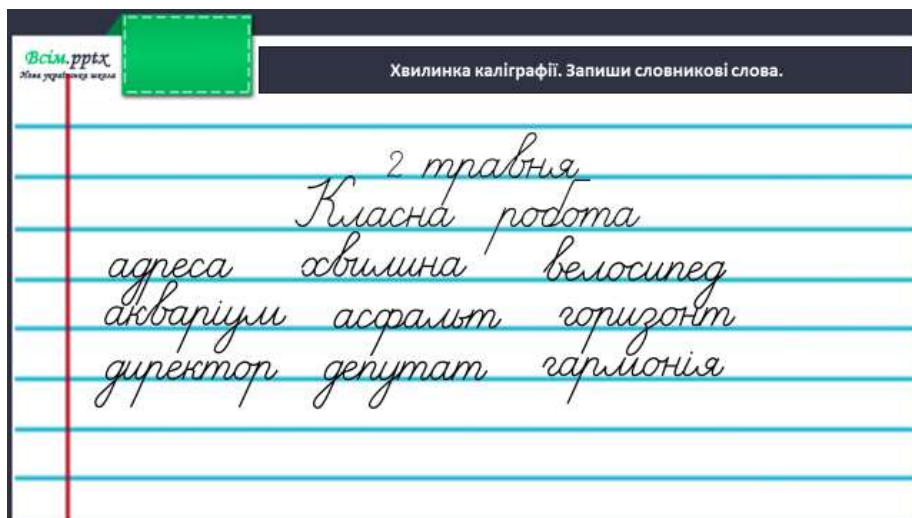 Всім.pptx
Нова українська школа
Хвилинка каліграфії. Запиши словникові слова.
2 травня
Класна робота
адреса хвилина велосипед
акваріум асфальт горизонт
директор депутат гармонія